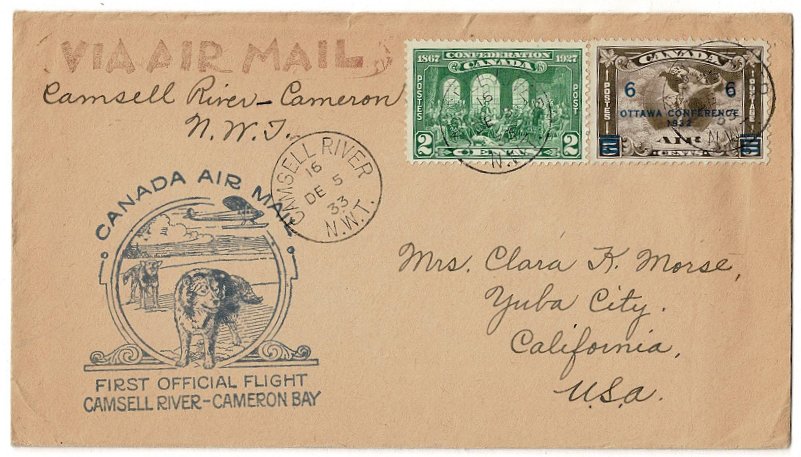 VIA AIR MAIL
Camsell River - Cameron
N.W.T.
1867 CONFEDERATION 1927
CANADA
POSTES POST
2 CENTS 2
CANADA
POSTES POSTAGE
6 6
OTTAWA CONFERENCE
1932
AIR
CENTS
CAMSELL RIVER
16
DE 5
33
N.W.T.
CANADA AIR MAIL
FIRST OFFICIAL FLIGHT
CAMSELL RIVER-CAMERON BAY
Mrs. Clara K. Morse,
Yuba City.
California.
U.S.A.